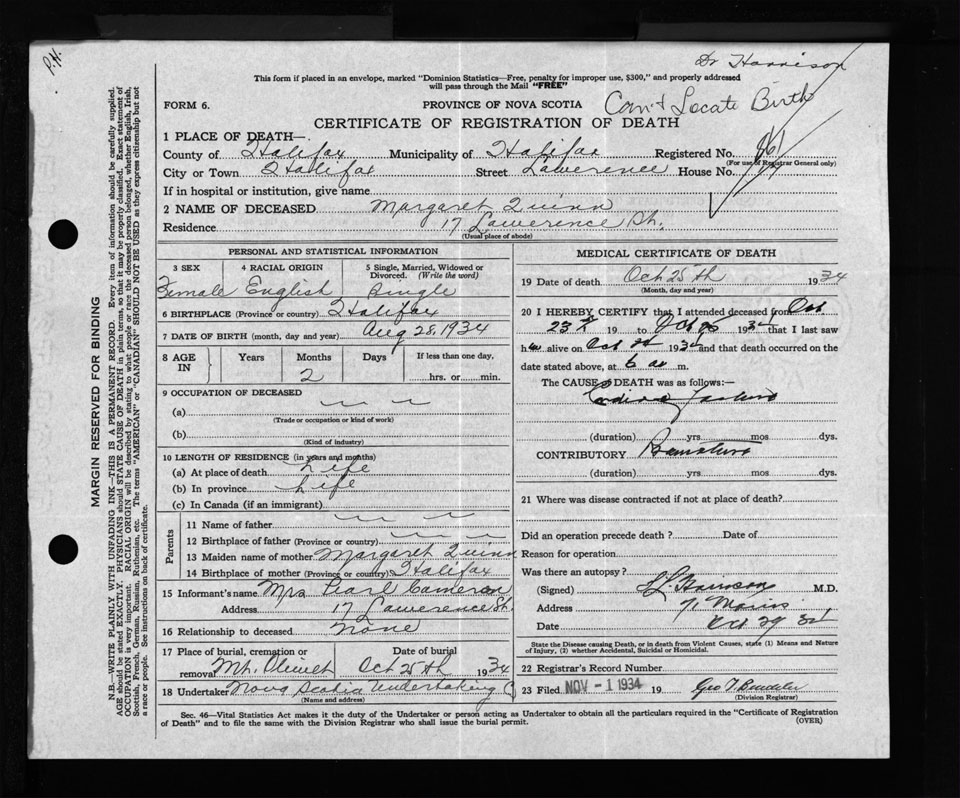 P.H.
Dr Harrison
This form if placed in an envelope, marked "Dominion Statistics—Free, penalty for improper use, $300," and properly addressed
will pass through the Mail "FREE"
FORM 6.
PROVINCE OF NOVA SCOTIA
Can't Locate Birth
CERTIFICATE OF REGISTRATION OF DEATH
1 PLACE OF DEATH—
County of Halifax Municipality of Halifax Registered No.
(For use of Registrar General only)
City or Town Halifax Street Lawerence House No. 17
If in hospital or institution, give name
2 NAME OF DECEASED Margaret Quinn
Residence 17 Lawerence St.
(Usual place of abode)
PERSONAL AND STATISTICAL INFORMATION
3 SEX 4 RACIAL ORIGIN 5 Single, Married, Widowed or Divorced. (Write the word)
Female English Single
6 BIRTHPLACE (Province or country) Halifax
7 DATE OF BIRTH (month, day and year) Aug 28, 1934
8 AGE IN Years Months Days If less than one day,
2 hrs. or min.
9 OCCUPATION OF DECEASED
(a)
(Trade or occupation or kind of work)
(b)
(Kind of industry)
10 LENGTH OF RESIDENCE (in years and months)
(a) At place of death Life
(b) In province Life
(c) In Canada (if an immigrant)
Parents
11 Name of father
12 Birthplace of father (Province or country)
13 Maiden name of mother Margaret Quinn
14 Birthplace of mother (Province or country) Halifax
15 Informant's name Mrs Pearl Cameron
Address 17 Lawerence St.
16 Relationship to deceased None
17 Place of burial, cremation or removal Date of burial
Mt. Olivet Oct 25th 1934
18 Undertaker Nova Scotia Undertaking Co
(Name and address)
MEDICAL CERTIFICATE OF DEATH
19 Date of death Oct 25th 1934
(Month, day and year)
20 I HEREBY CERTIFY that I attended deceased from Oct
23 19 to Oct 1934 that I last saw
h alive on Oct 1934 and that death occurred on the
date stated above, at 6 a m.
The CAUSE OF DEATH was as follows:—
(duration) yrs mos dys.
CONTRIBUTORY
(duration) yrs. mos. dys.
21 Where was disease contracted if not at place of death?
Did an operation precede death? Date of
Reason for operation
Was there an autopsy?
(Signed) Harrison M.D.
Address 71 Morris
Date Oct 29 34
State the Disease causing Death, or in death from Violent Causes, state (1) Means and Nature
of Injury, (2) whether Accidental, Suicidal or Homicidal.
22 Registrar's Record Number
23 Filed NOV - 1 1934 19
(Division Registrar)
Sec. 46—Vital Statistics Act makes it the duty of the Undertaker or person acting as Undertaker to obtain all the particulars required in the "Certificate of Registration
of Death" and to file the same with the Division Registrar who shall issue the burial permit.
(OVER)
MARGIN RESERVED FOR BINDING
N.B.—WRITE PLAINLY WITH UNFADING INK—THIS IS A PERMANENT RECORD. Every item of information should be carefully supplied.
AGE should be stated EXACTLY. PHYSICIANS should STATE CAUSE OF DEATH in plain terms, so that it may be properly classified. Exact statement of
OCCUPATION is very important. RACIAL ORIGIN will be described by stating to what people or race the deceased person belonged, whether English, Irish,
Scottish, French, German, Russian, Ruthenian, etc. The terms "AMERICAN" or "CANADIAN" SHOULD NOT BE USED as they express citizenship but not
a race or people. See instructions on back of certificate.